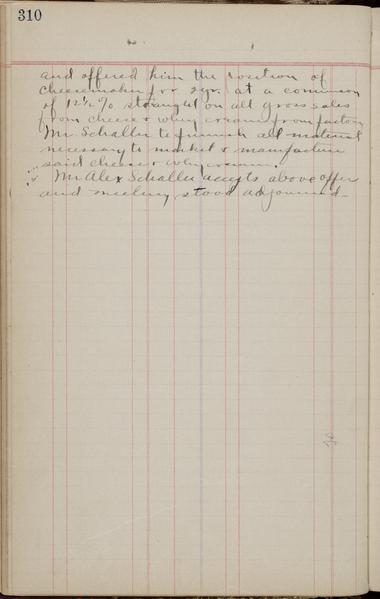 310
and offered him the position of
cheesemaker for 2 yr. at a commission
of 12½% straight on all gross sales
from cheese & whey cream from factory
Mr Schaller to furnish all material
necessary to market & manufacture
said cheese & whey cream.
Mr Alex Schaller accepts above offer
and meeting stood adjourned —